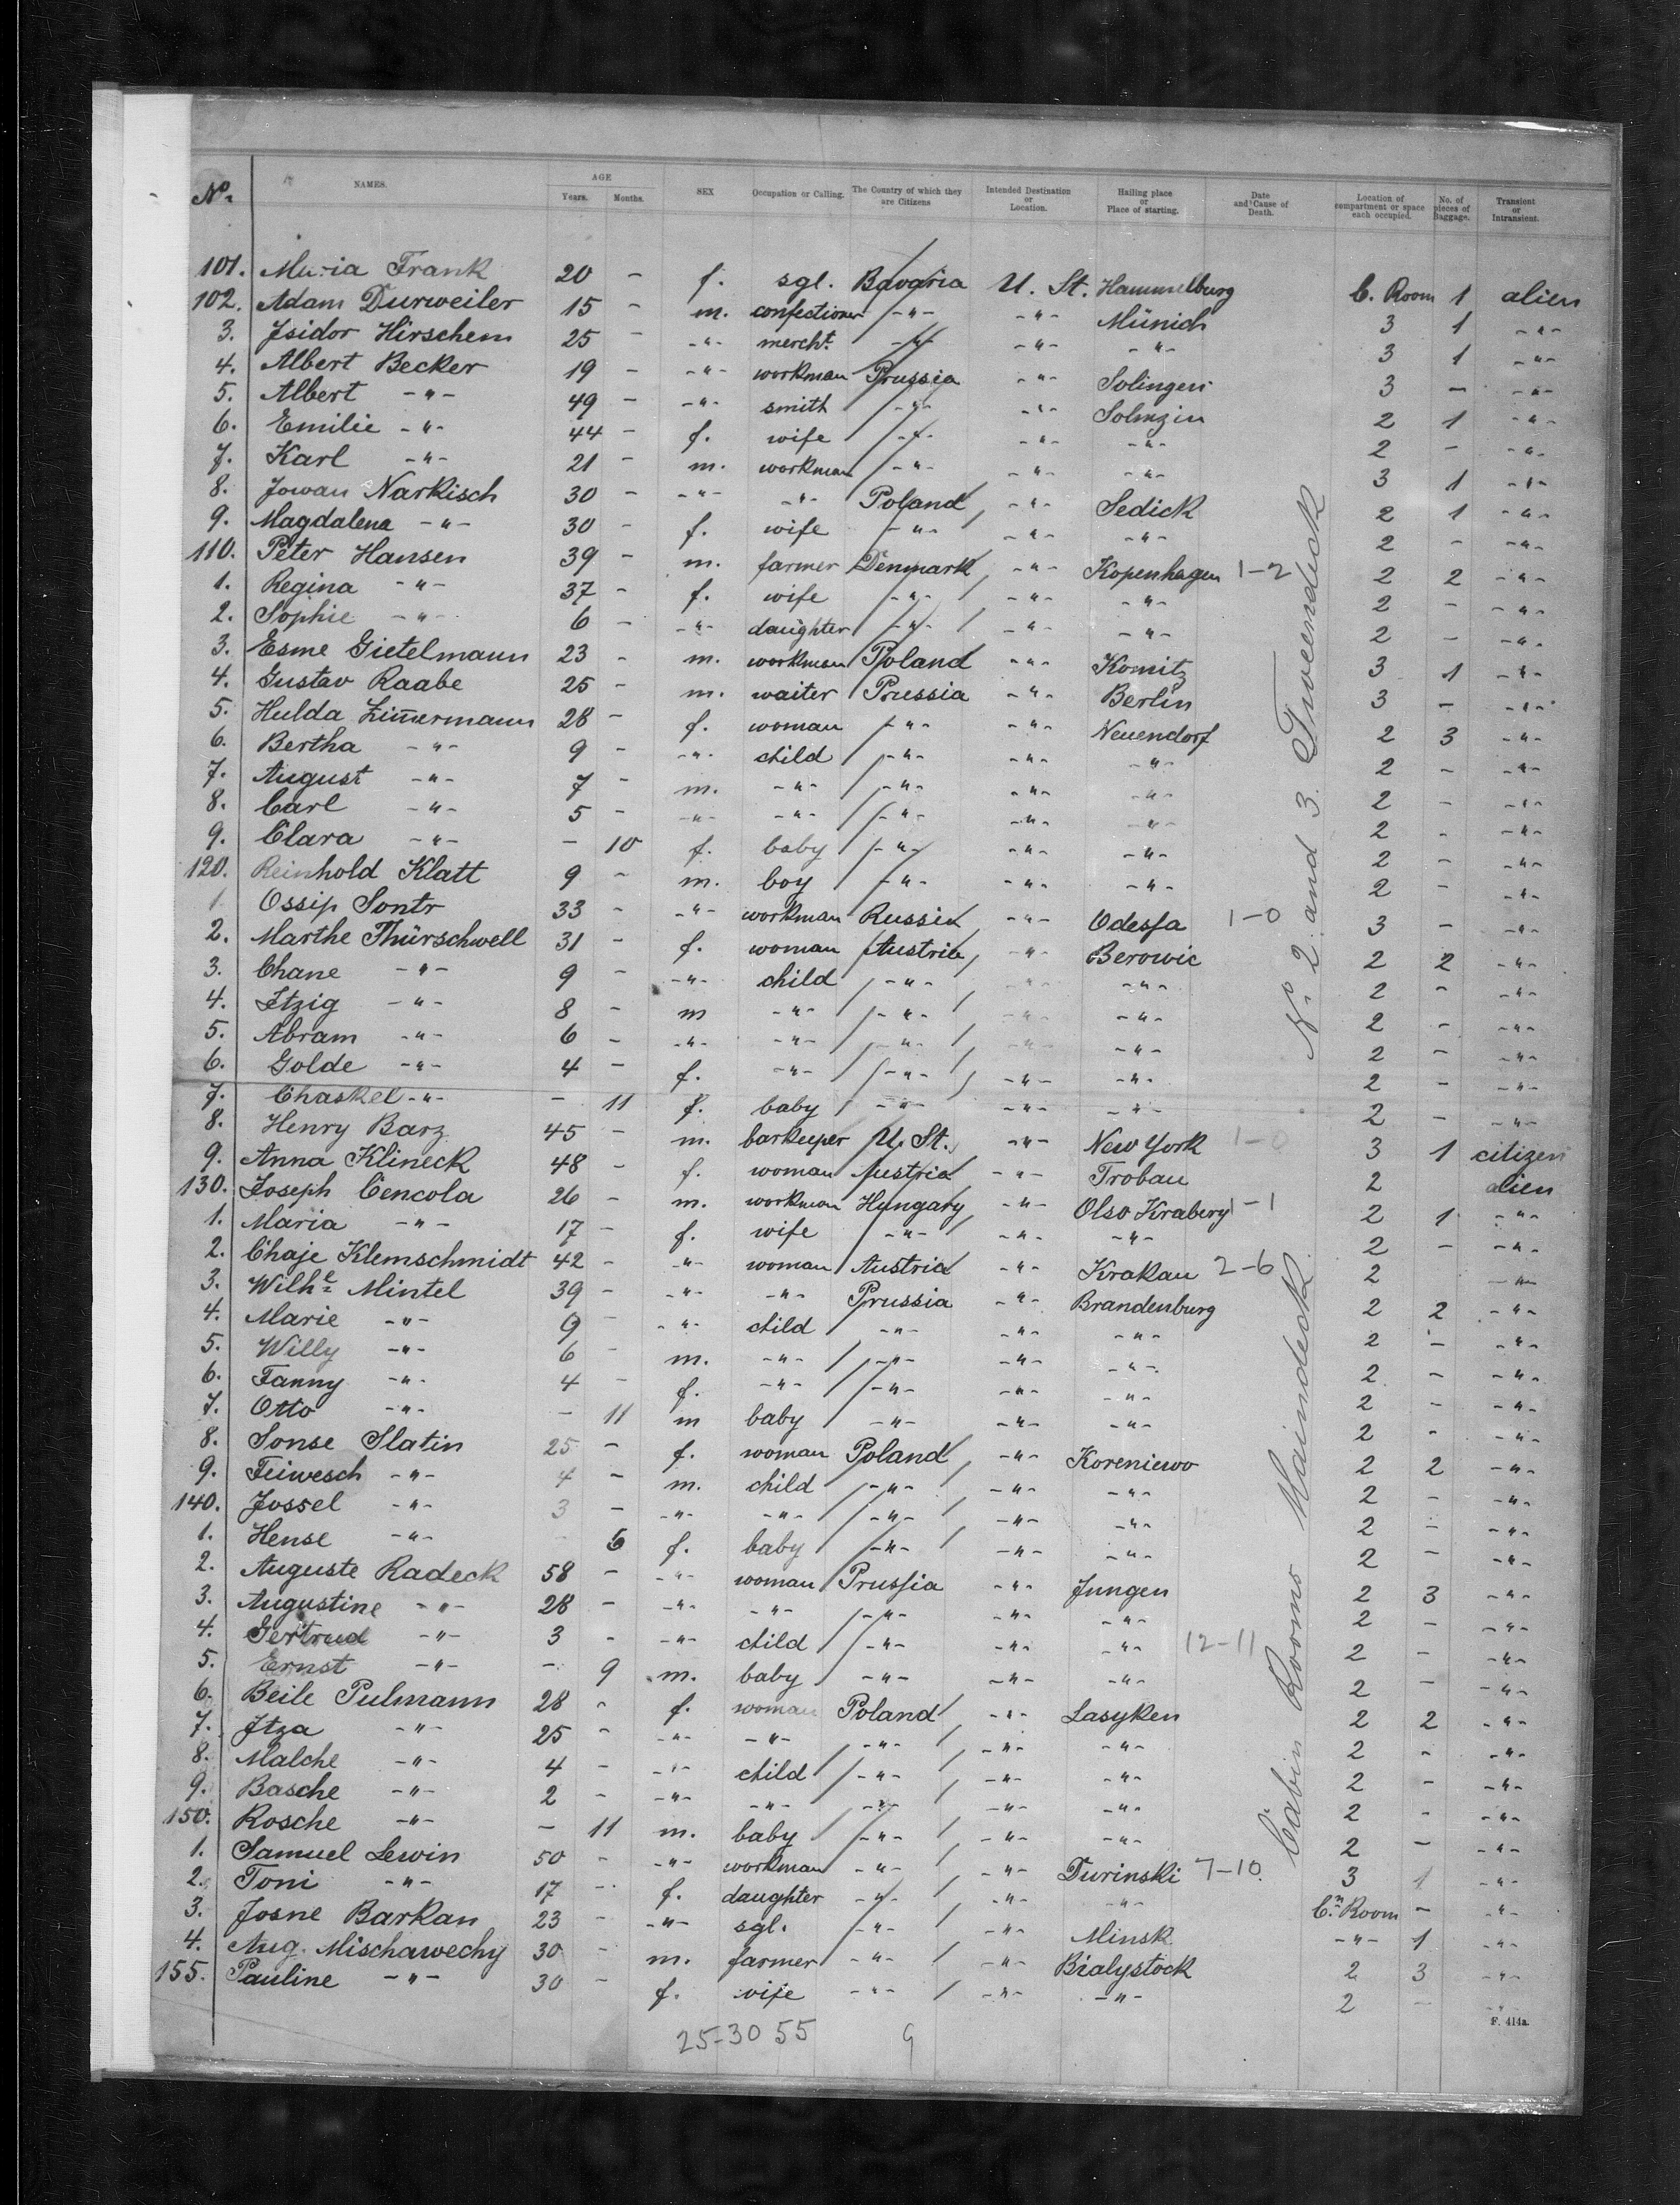 No. NAMES. AGE Years. Months. SEX Occupation or Calling. The Country of which they are Citizens Intended Destination or Location. Hailing place or Place of starting. Date and Cause of Death. Location of compartment or space each occupied. No. of pieces of Baggage. Transient or Intransient.
101. Maria Frank 20 - f. sgl. Bavaria U. St. Hammelburg C. Room 1 alien
102. Adam Durweiler 15 - m. confectioner -"- -"- Münich 3 1 -"-
3. Isidor Hirschem 25 - -"- mercht. -"- -"- -"- 3 1 -"-
4. Albert Becker 19 - -"- workman Prussia -"- Solingen 3 - -"-
5. Albert -"- 49 - -"- smith -"- -"- Solmzin 2 1 -"-
6. Emilie -"- 44 - f. wife -"- -"- -"- 2 - -"-
7. Karl -"- 21 - m. workman -"- -"- -"- 3 1 -"-
8. Jowan Narkisch 30 - -"- -"- Poland -"- Sedick 2 1 -"-
9. Magdalena -"- 30 - f. wife -"- -"- -"- 2 - -"-
110. Peter Hansen 39 - m. farmer Denmark -"- Kopenhagen 1-2 2 2 -"-
1. Regina -"- 37 - f. wife -"- -"- -"- 2 - -"-
2. Sophie -"- 6 - -"- daughter -"- -"- -"- 2 - -"-
3. Esme Gietelmann 23 - m. workman Poland -"- Komitz 3 1 -"-
4. Gustav Raabe 25 - m. waiter Prussia -"- Berlin 3 - -"-
5. Hulda Zim̄ermann 28 - f. woman -"- -"- Neuendorf 2 3 -"-
6. Bertha -"- 9 - -"- child -"- -"- -"- 2 - -"-
7. August -"- 7 - m. -"- -"- -"- -"- 2 - -"-
8. Carl -"- 5 - -"- -"- -"- -"- -"- 2 - -"-
9. Clara -"- - 10 f. baby -"- -"- -"- 2 - -"-
120. Reinhold Klatt 9 - m. boy -"- -"- -"- 2 - -"-
1 Ossip Sontr 33 - -"- workman Russia -"- Odessa 1-0 3 - -"-
2. Marthe Thürschwell 31 - f. woman Austria -"- Berowic 2 2 -"-
3. Chane -"- 9 - -"- child -"- -"- -"- 2 - -"-
4. Itzig -"- 8 - m -"- -"- -"- -"- 2 - -"-
5. Abram -"- 6 - -"- -"- -"- -"- -"- 2 - -"-
6. Golde -"- 4 - f. -"- -"- -"- -"- 2 - -"-
7. Chaskel -"- - 11 f. baby -"- -"- -"- 2 - -"-
8. Henry Barz 45 - m. barkeeper U. St. -"- New York 1-0 3 1 citizen
9. Anna Klineck 48 - f. woman Austria -"- Trobau 2 alien
130. Joseph Cencola 26 - m. workman Hungary -"- Olso Krabery 1-1 2 1 -"-
1. Maria -"- 17 - f. wife -"- -"- -"- 2 - -"-
2. Chaje Klemschmidt 42 - -"- woman Austria -"- Krakau 2-6 2 -"-
3. Wilhe. Mintel 39 - -"- -"- Prussia -"- Brandenburg 2 2 -"-
4. Marie -"- 9 - -"- child -"- -"- -"- 2 - -"-
5. Willy -"- 6 - m. -"- -"- -"- -"- 2 - -"-
6. Fanny -"- 4 - f. -"- -"- -"- -"- 2 - -"-
7. Otto -"- - 11 m baby -"- -"- -"- 2 - -"-
8. Sonse Slatin 25 - f. woman Poland -"- Koreniewo 2 2 -"-
9. Feiwesch -"- 4 - m. child -"- -"- -"- 2 - -"-
140. Jossel -"- 3 - -"- -"- -"- -"- -"- 2 - -"-
1. Hense -"- - 6 f. baby -"- -"- -"- 2 - -"-
2. Auguste Radeck 58 - -"- woman Prussia -"- Jungen 2 3 -"-
3. Augustine -"- 28 - -"- -"- -"- -"- -"- 2 - -"-
4. Gertrud -"- 3 - -"- child -"- -"- -"- 12-11 2 - -"-
5. Ernst -"- - 9 m. baby -"- -"- -"- 2 - -"-
6. Beile Pulmann 28 - f. woman Poland -"- Lasyken 2 2 -"-
7. Itza -"- 25 - -"- -"- -"- -"- -"- 2 - -"-
8. Malche -"- 4 - -"- child -"- -"- -"- 2 - -"-
9. Basche -"- 2 - -"- -"- -"- -"- -"- 2 - -"-
150. Rosche -"- - 11 m. baby -"- -"- -"- 2 - -"-
1. Samuel Lewin 50 - -"- workman -"- -"- Durinski 7-10 3 1 -"-
2. Toni -"- 17 - f. daughter -"- -"- -"- Cn. Room - -"-
3. Josne Barkan 23 - -"- sgl. -"- -"- Minsk -"- 1 -"-
4. Aug. Mischawechy 30 - m. farmer -"- -"- Bialystock 2 3 -"-
155. Pauline -"- 30 - f. wife -"- -"- -"- 2 - -"-
Cabin Rooms Maindeck No 2 and 3. Tweendeck
25-30 55 9
F. 414a.